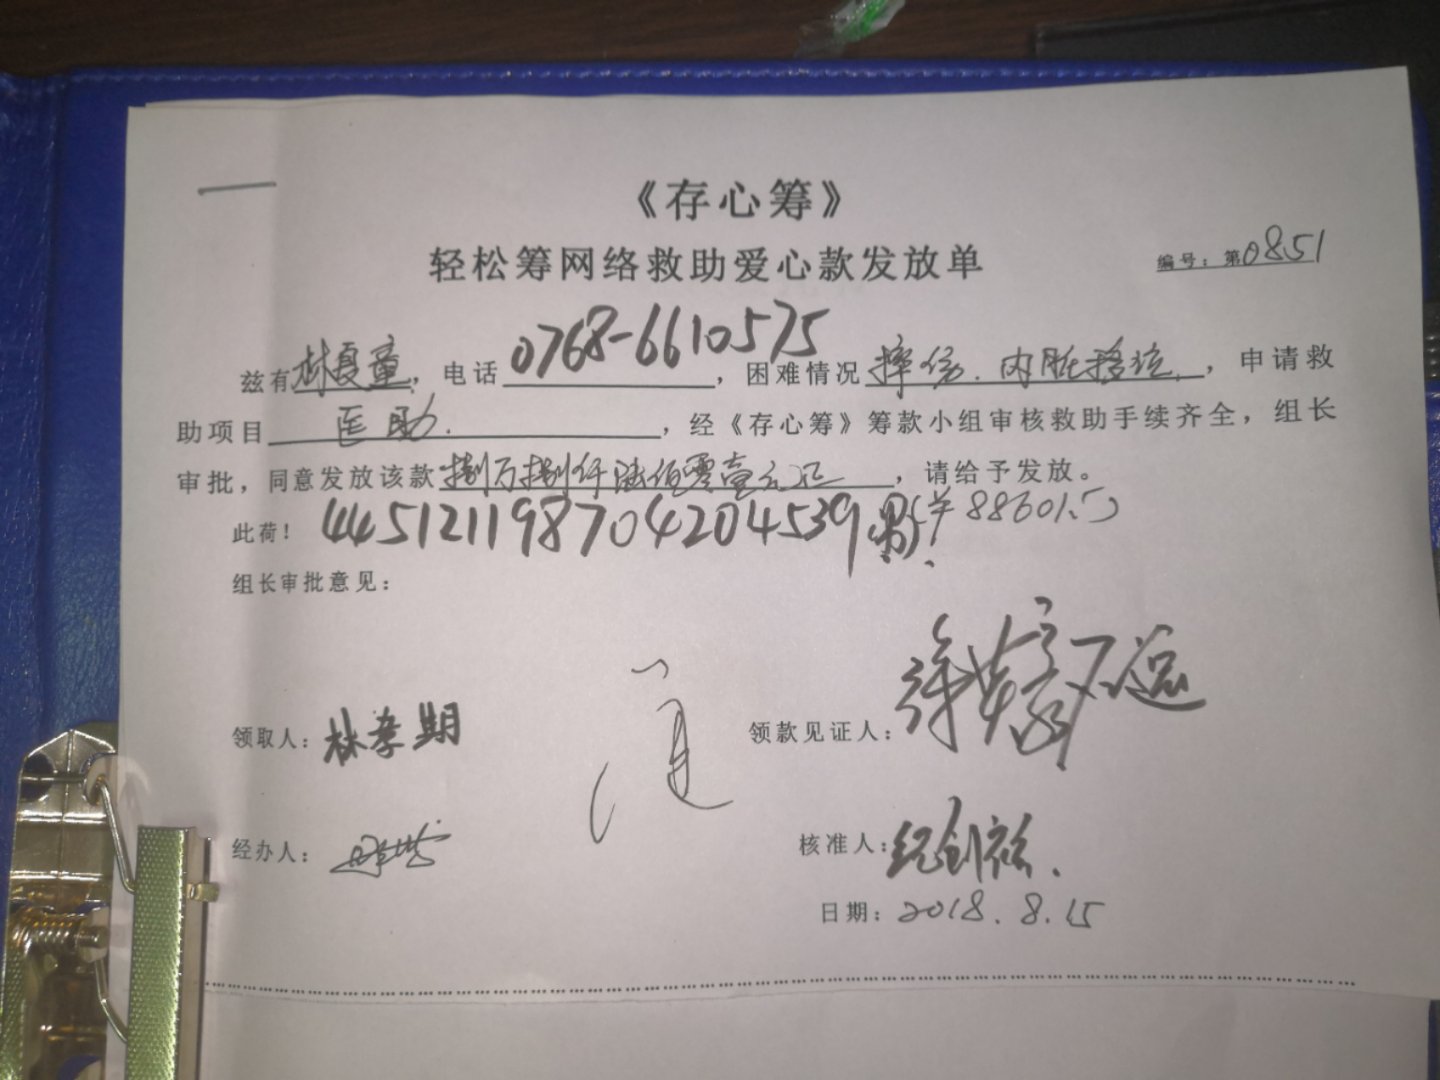 《存心筹》
轻松筹网络救助爱心款发放单
编号：第0851
兹有林夏童，电话0768-6610575，困难情况摔伤．内脏移位．，申请救
助项目医助．，经《存心筹》筹款小组审核救助手续齐全，组长
审批，同意发放该款捌万捌仟陆佰零壹元正，请给予发放。
此荷！445121198704204539 ￥88601.
组长审批意见：
领取人：林孝期 领款见证人：
经办人： 核准人：纪剑
日期：2018.8.15